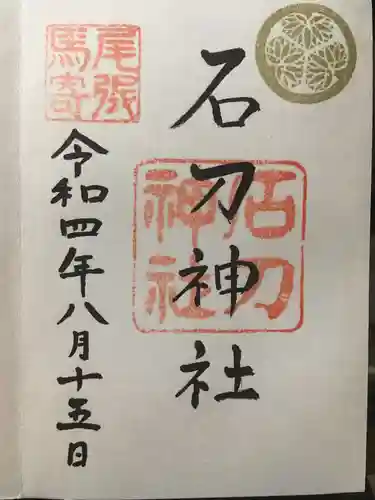 石刀神社
石刀神社
尾張馬寄
令和四年八月十五日